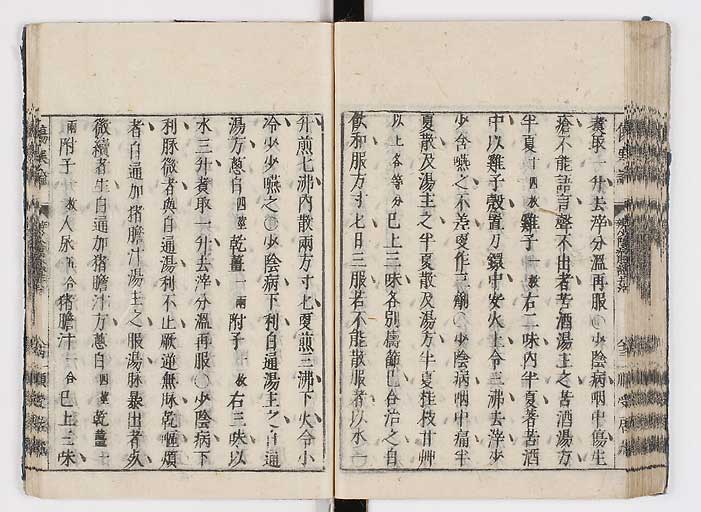 煮取一升去滓分溫再服○少陰病咽中傷生
瘡不能語言聲不出者苦酒湯主之苦酒湯方
半夏十四枚雞子一枚右二味內半夏著苦酒
中以雞子殼置刀鐶中安火上令三沸去滓少
少含嚥之不差更作三劑○少陰病咽中痛半
夏散及湯主之半夏散及湯方半夏桂枝甘艸
以上各等分已上三味各別擣篩已合治之白
飲和服方寸匕日三服若不能散服者以水一
升煎七沸內散兩方寸匕更煎三沸下火令小
冷少少嚥之○少陰病下利白通湯主之白通
湯方蔥白四莖乾薑一兩附子一枚右三味以
水三升煮取一升去滓分溫再服○少陰病下
利脉微者與白通湯利不止厥逆無脉乾嘔煩
者白通加猪膽汁湯主之服湯脉暴出者死
微續者生白通加猪膽汁方蔥白四莖乾薑一
兩附子一枚人尿五合猪膽汁一合已上三味